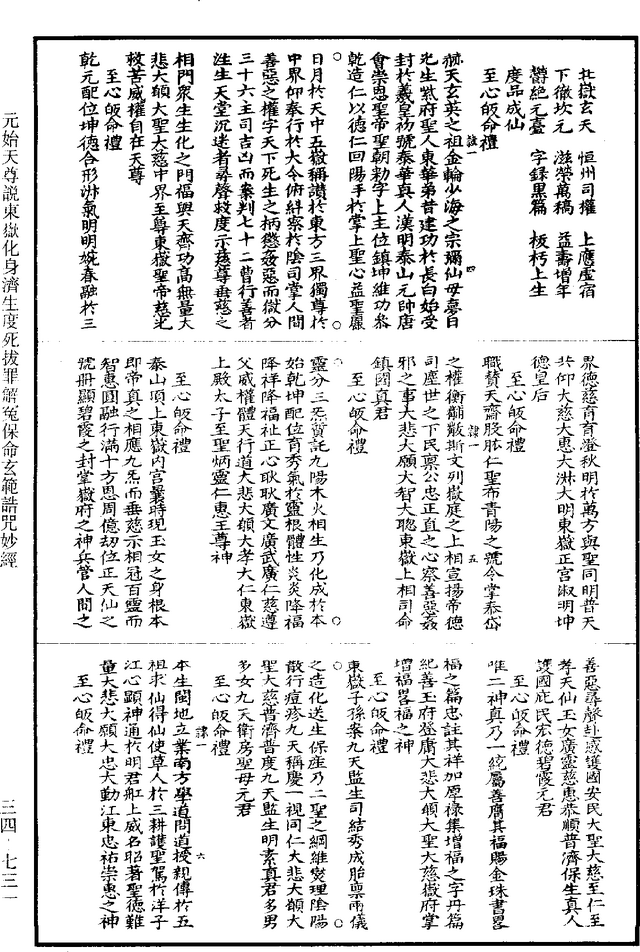 北嶽玄天　恒州司權　上應虛宿
下徹坎元　滋榮萬稿　益壽增年
鬱絕玄臺　字録黑篇　板朽上生
度品成仙
至心皈命禮
隸一
赫天玄英之祖金輪少海之宗彌仙母夢日
四
光生紫府聖人東華弟昔建功於長白始受
封於羲皇初號泰華真人漢明泰山元帥唐
會崇恩聖帝聖朝勑字上主位鎮坤維功參
乾造仁以德仁回陽手於掌上聖心益聖嚴
日月於天中五嶽稱讚於東方三界獨尊於
中界仰奉行於大令俯糾察於陰司掌人間
善惡之權字天下死生之柄懲姦惡而獄分
三十六主司吉凶而案判七十二曹行善者
注生天堂沉迷者尋聲救度示慈尊垂慈之
相門衆生生化之門福與天齊功高無量大
悲大願大聖大慈中界至尊東嶽聖帝慈光
救苦威權自在天尊
至心皈命禮
乾元配位坤德合形淋氣明明婉春融於三
界德慈育育澄秋明於萬方與聖同明普天
共仰大慈大惠大淋大明東嶽正宮淑明坤
德皇后
至心皈命禮
職贊天齋股肱仁聖布青陽之號令掌泰岱
隸一
之權衡黼黻斯文列嶽庭之上相宣揚帝德
五
司塵世之下民稟公忠正直之心察善惡姦
邪之事大悲大願大智大聰東嶽上相司命
鎮國真君
至心皈命禮
靈分三炁暫託九陽木火相生乃化成於本
始乾坤配位育秀氣於靈根體性炎炎降福
降祥降福祉正心耿耿廣文廣武廣仁慈遵
父威權體天行道大悲大願大孝大仁東嶽
上殿太子至聖炳靈仁惠王尊神
至心皈命禮
泰山頂上東嶽內宮曩時現玉女之身根本
即帝真之相應九炁而垂慈示相冠百靈而
智惠圓融行滿十方恩周億劫位正天仙之
號冊顯碧霞之封掌嶽府之神兵管人間之
善惡尋聲赴感護國安民大聖大慈至仁至
孝天仙玉女廣靈慈惠恭順普濟保生真人
護國庇民宏德碧霞元君
至心皈命禮
唯二神真乃一統屬善膺其福賜金珠書畧
福之篇忠註其祥加厚祿集增福之字丹篇
紀善玉府登庸大悲大願大聖大慈嶽府掌
增福畧福之神
至心皈命禮
東嶽子孫案九天監生司結秀成胎稟兩儀
之造化送生保産乃二聖之綱維燮理陰陽
散行痘疹九天稱慶一視同仁大悲大願大
聖大慈普濟普度九天監生明素真君多男
多女九天衛房聖母元君
至心皈命禮
隸一
本生閩地立業南方學道問道授親傳於五
六
祖求仙得仙使草人於三耕護聖駕於洋子
江心顯神通於明君舡上威名昭著聖德難
量大悲大願大忠大勤江東忠祐崇惠之神
至心皈命禮
元始天尊説東嶽化身濟生度死拔罪解冤保命玄範誥咒妙經
三四·七三一